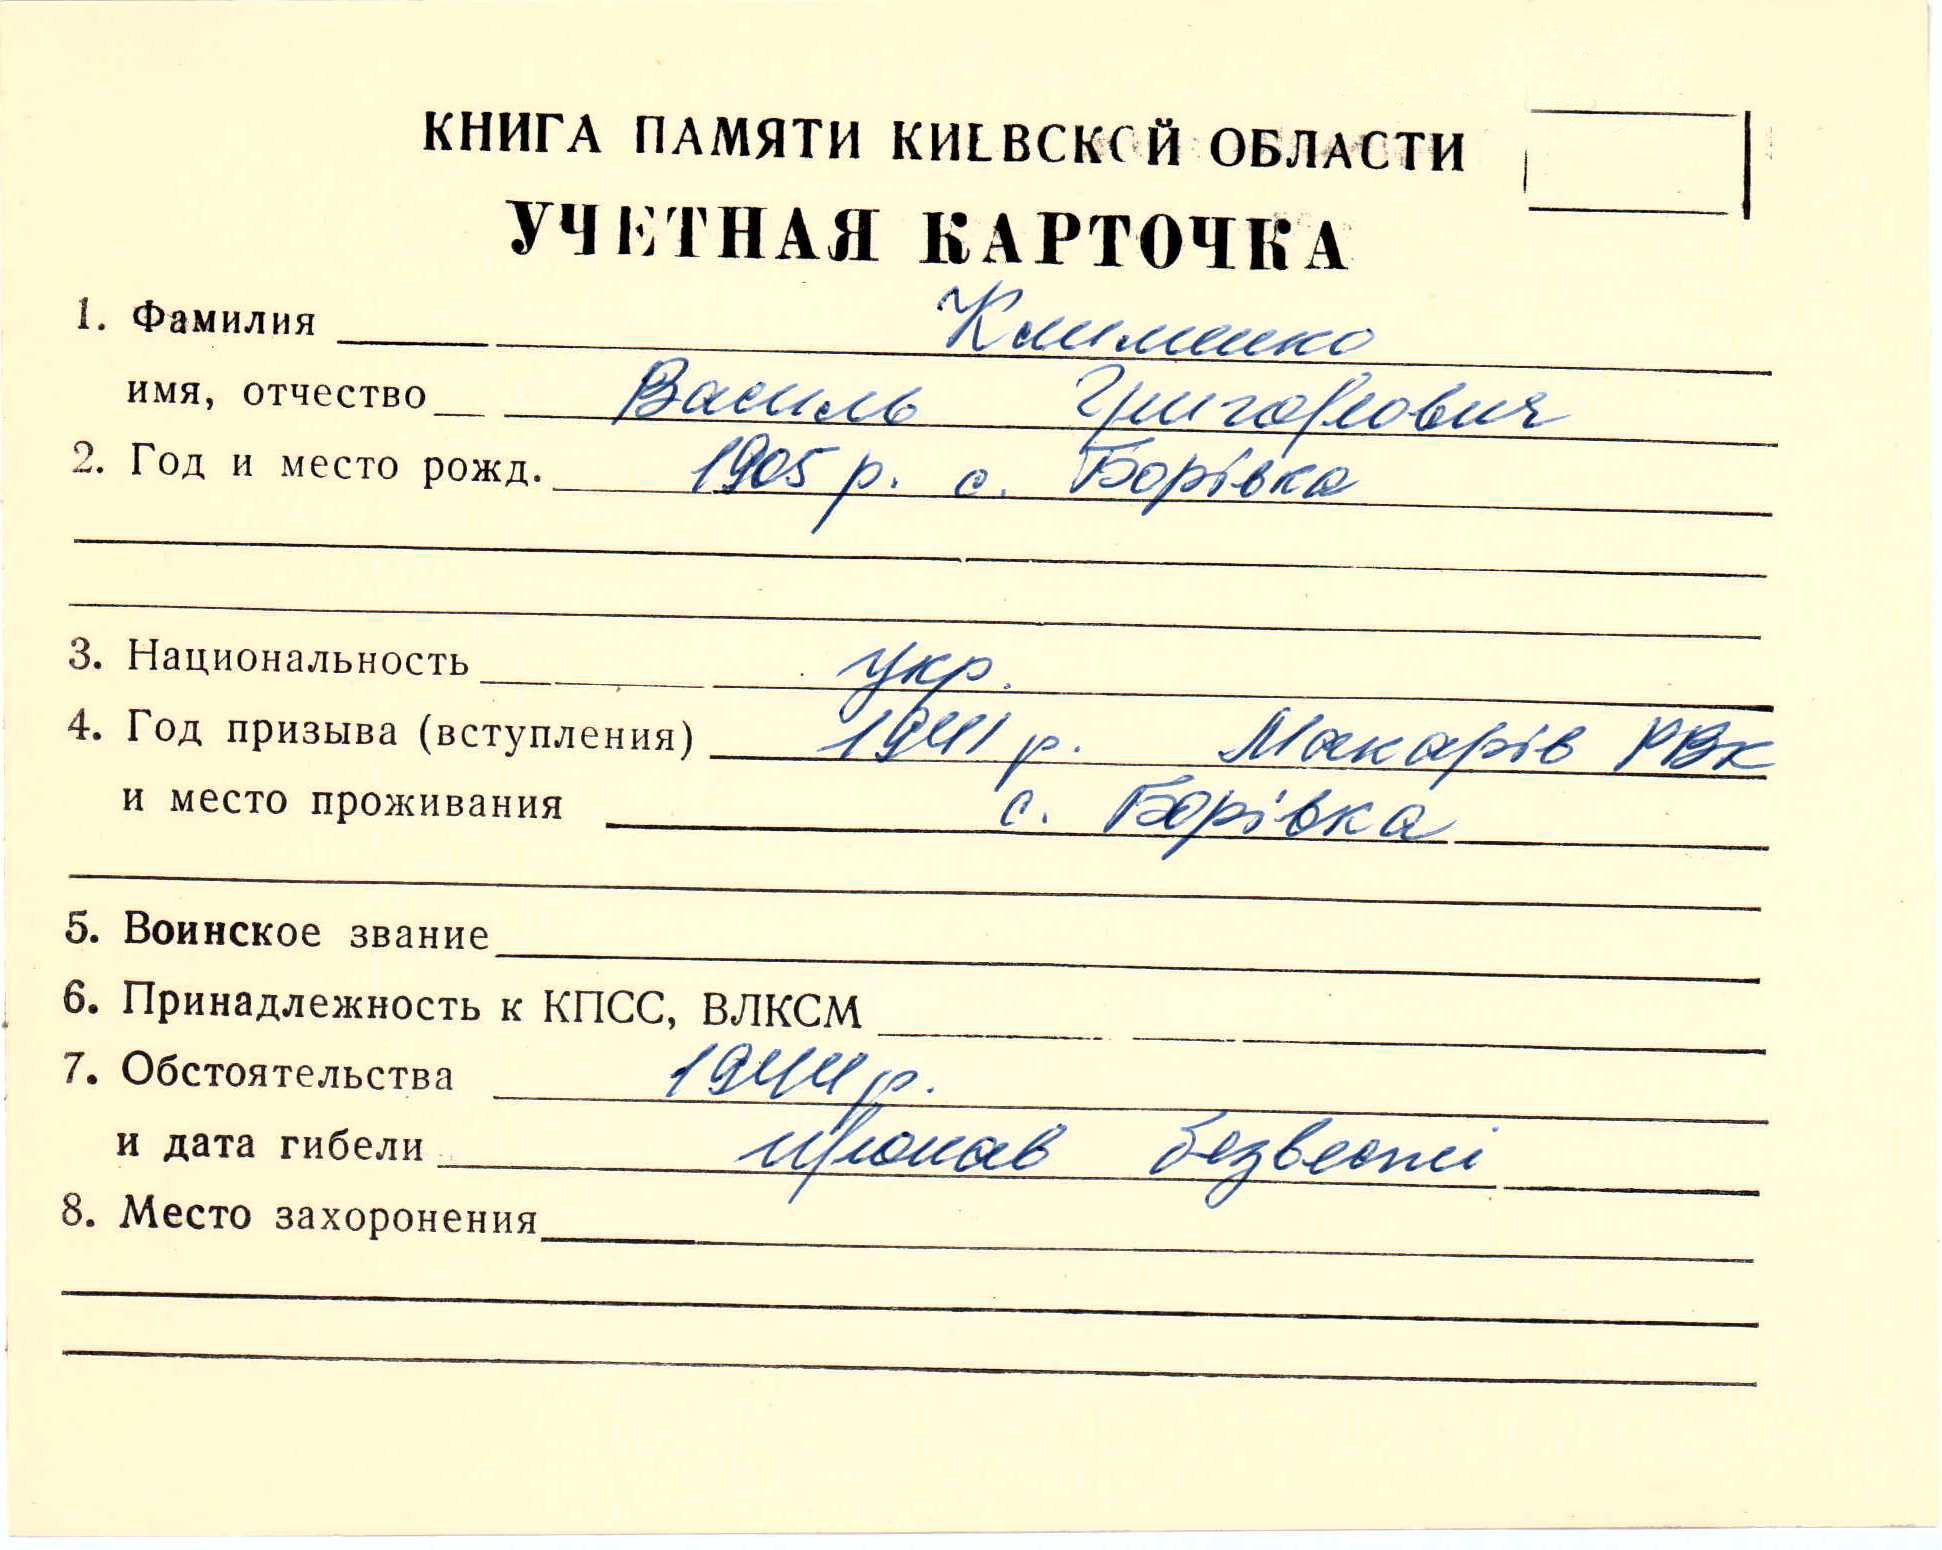 КНИГА ПАМЯТИ КИЕВСКОЙ ОБЛАСТИ
УЧЕТНАЯ КАРТОЧКА
1. Фамилия Клименко
имя, отчество Василь Григорович
2. Год и место рожд. 1905 р. с. Борівка
3. Национальность укр.
4. Год призыва (вступления) 1941 р. Макарів РВК
и место проживания с. Борівка
5. Воинское звание
6. Принадлежность к КПСС, ВЛКСМ
7. Обстоятельства 1944 р.
и дата гибели пропав безвесті
8. Место захоронения